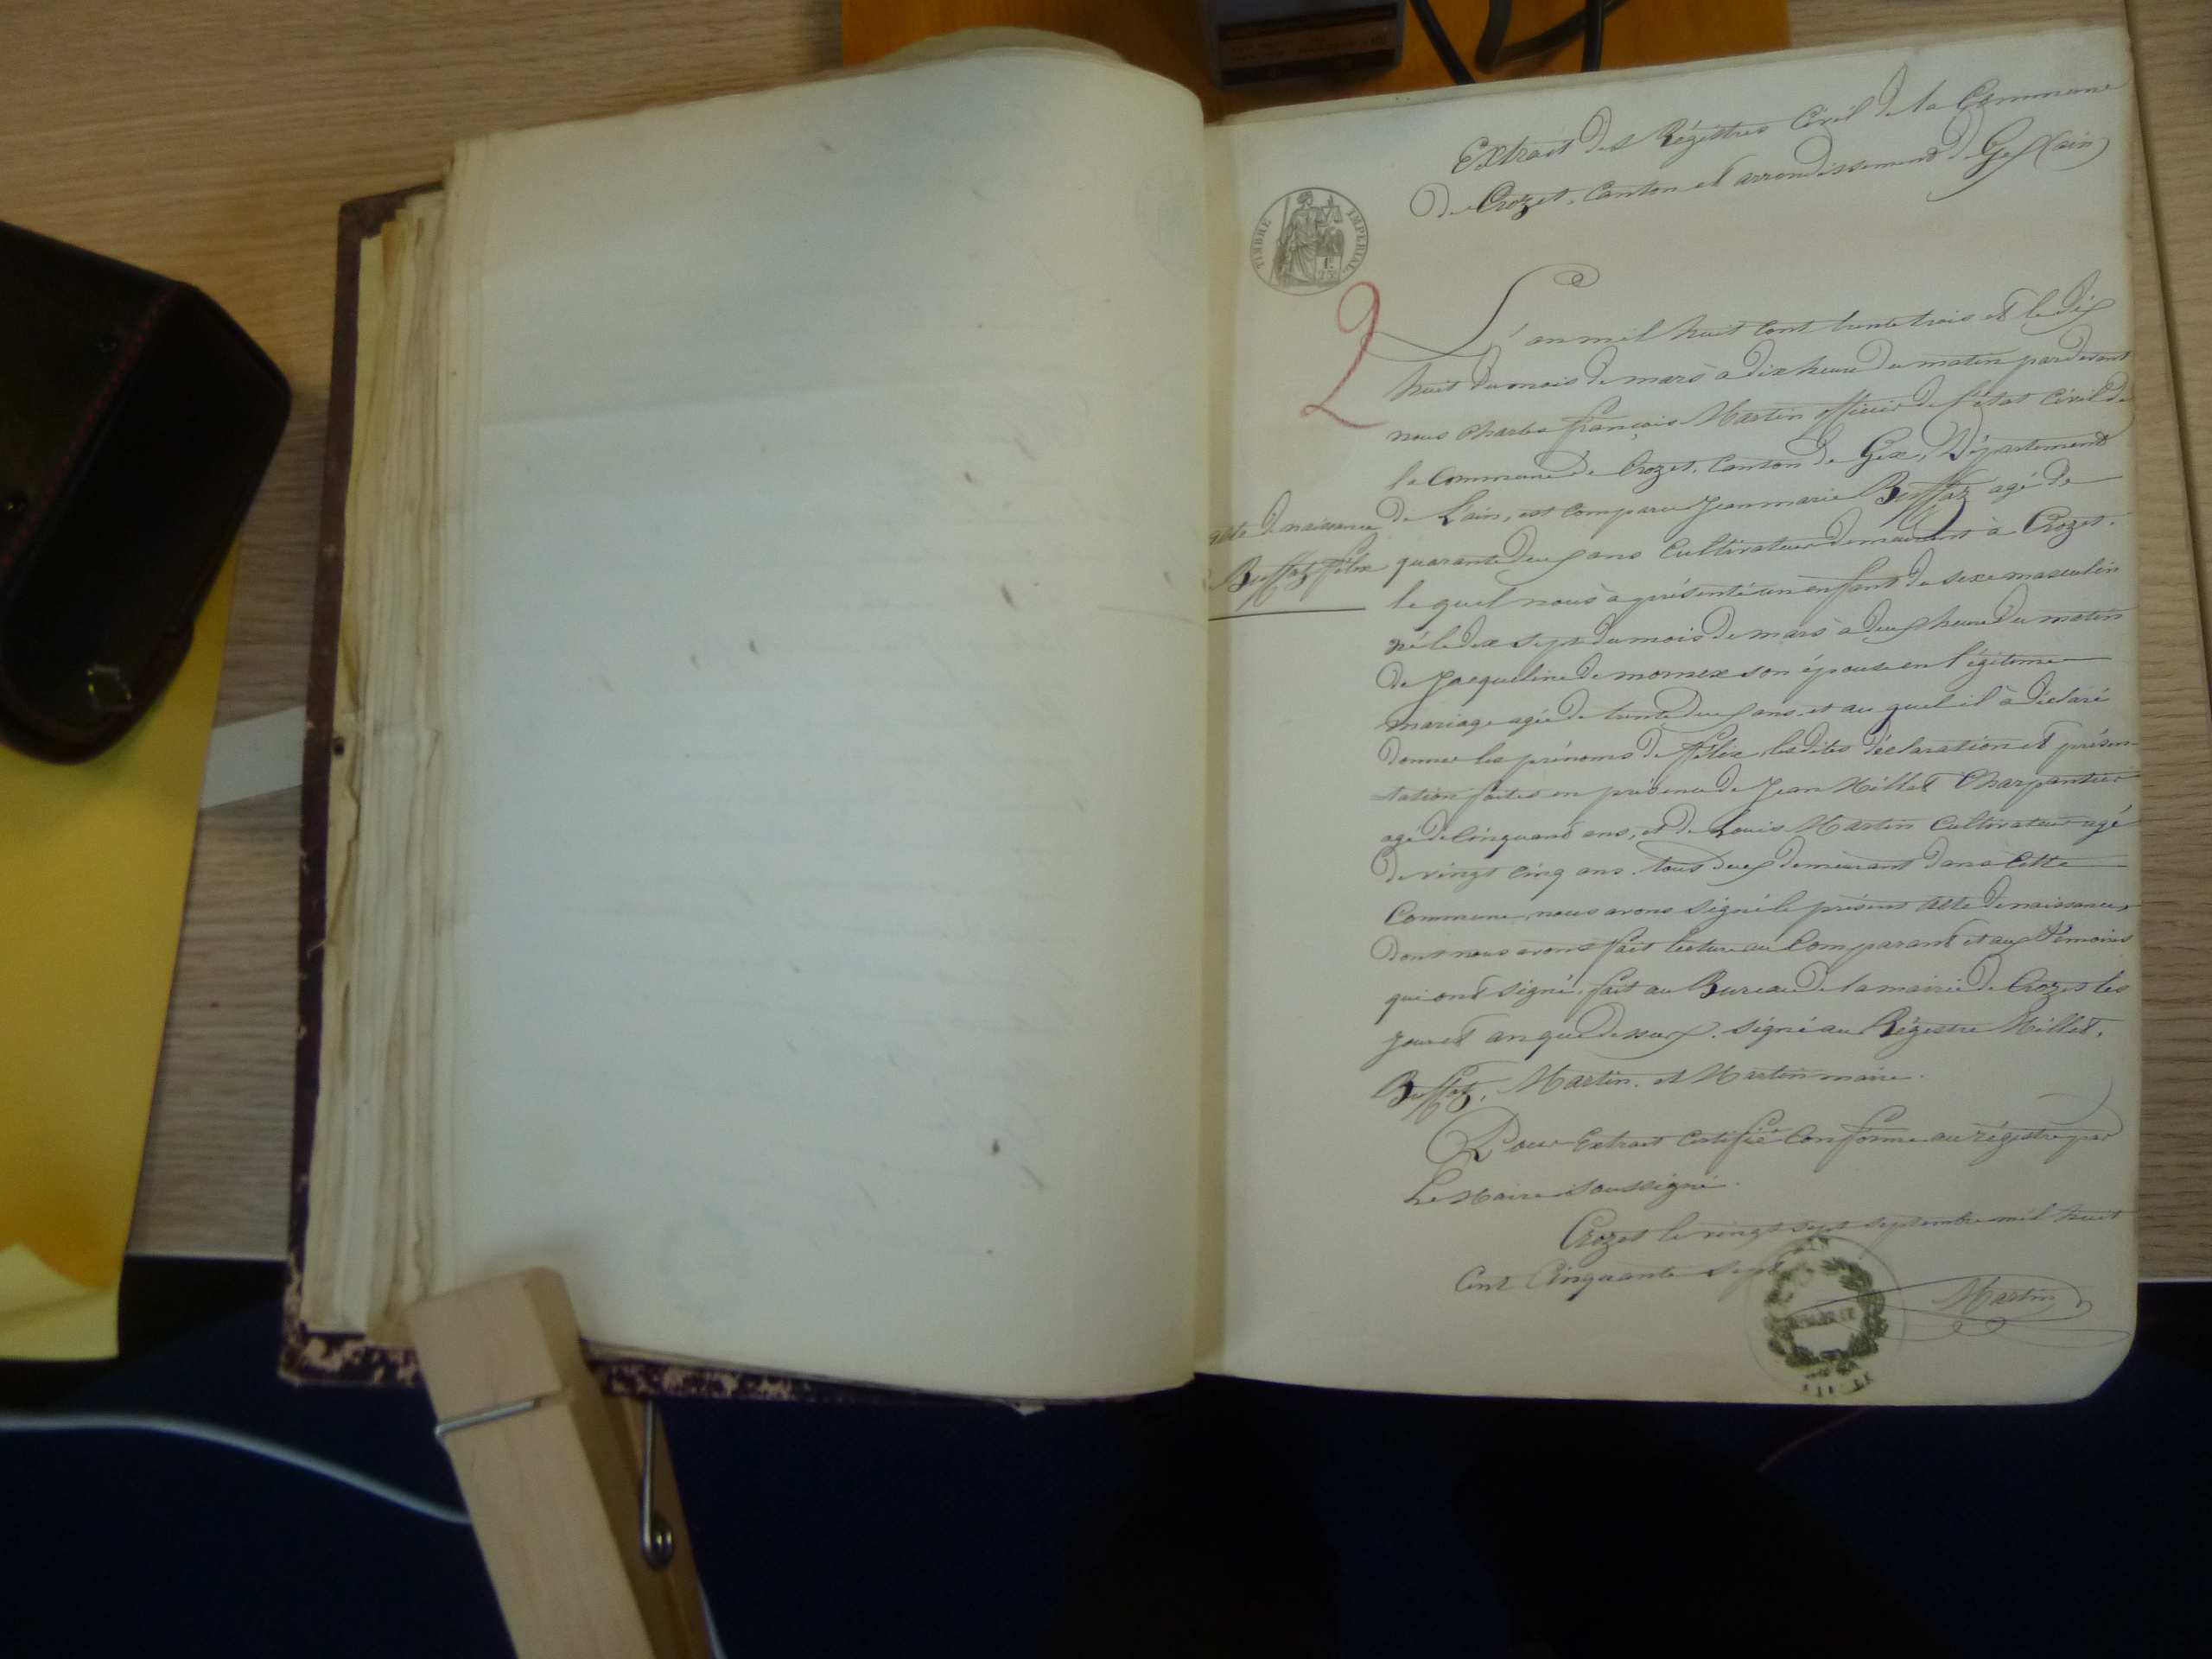 Extrait des Régistres Civil de la Commune
de Crozet, Canton et arrondissement de Gex (ain)
TIMBRE IMPERIAL
2
L'an mil huit cent trente trois et le dix
huit du mois de mars à dix heure du matin pardevant
nous Charles françois Martin officier de l'état Civil de
la Commune de Crozet, Canton de Gex, Département
de L'ain, est comparu Jean marie Buffaz agé de
acte de naissance
Buffaz félix
quarante deux ans Cultivateur demeurant à Crozet.
le quel nous à présenté un enfant du sexe masculin
né le dix sept du mois de mars à deux heure du matin
de Jacqueline de mornex son épouse en légitime
mariage agée de trente deux ans, et au quel il à déclaré
donner les prénoms de félix, les dites déclaration et présen-
-tation faites en présence de Jean Millet Charpantier
agé de Cinquant ans, et de Louis Martin Cultivateur agé
de vingt cinq ans. tous deux demeurant dans Cette
Commune, nous avons signé le présent Acte de naissance,
dont nous avons fait lecture au Comparant et aux témoins
qui ont signé, fait au Bureau de la mairie de Crozet les
jour et an que dessux. signé au Régistre Millet,
Buffaz, Martin. et Martin maire.
Pour Extrait Certifié Conforme au régistre par
Le Maire soussigné.
Crozet le vingt sept septembre mil huit
Cent Cinquante sept
Martin